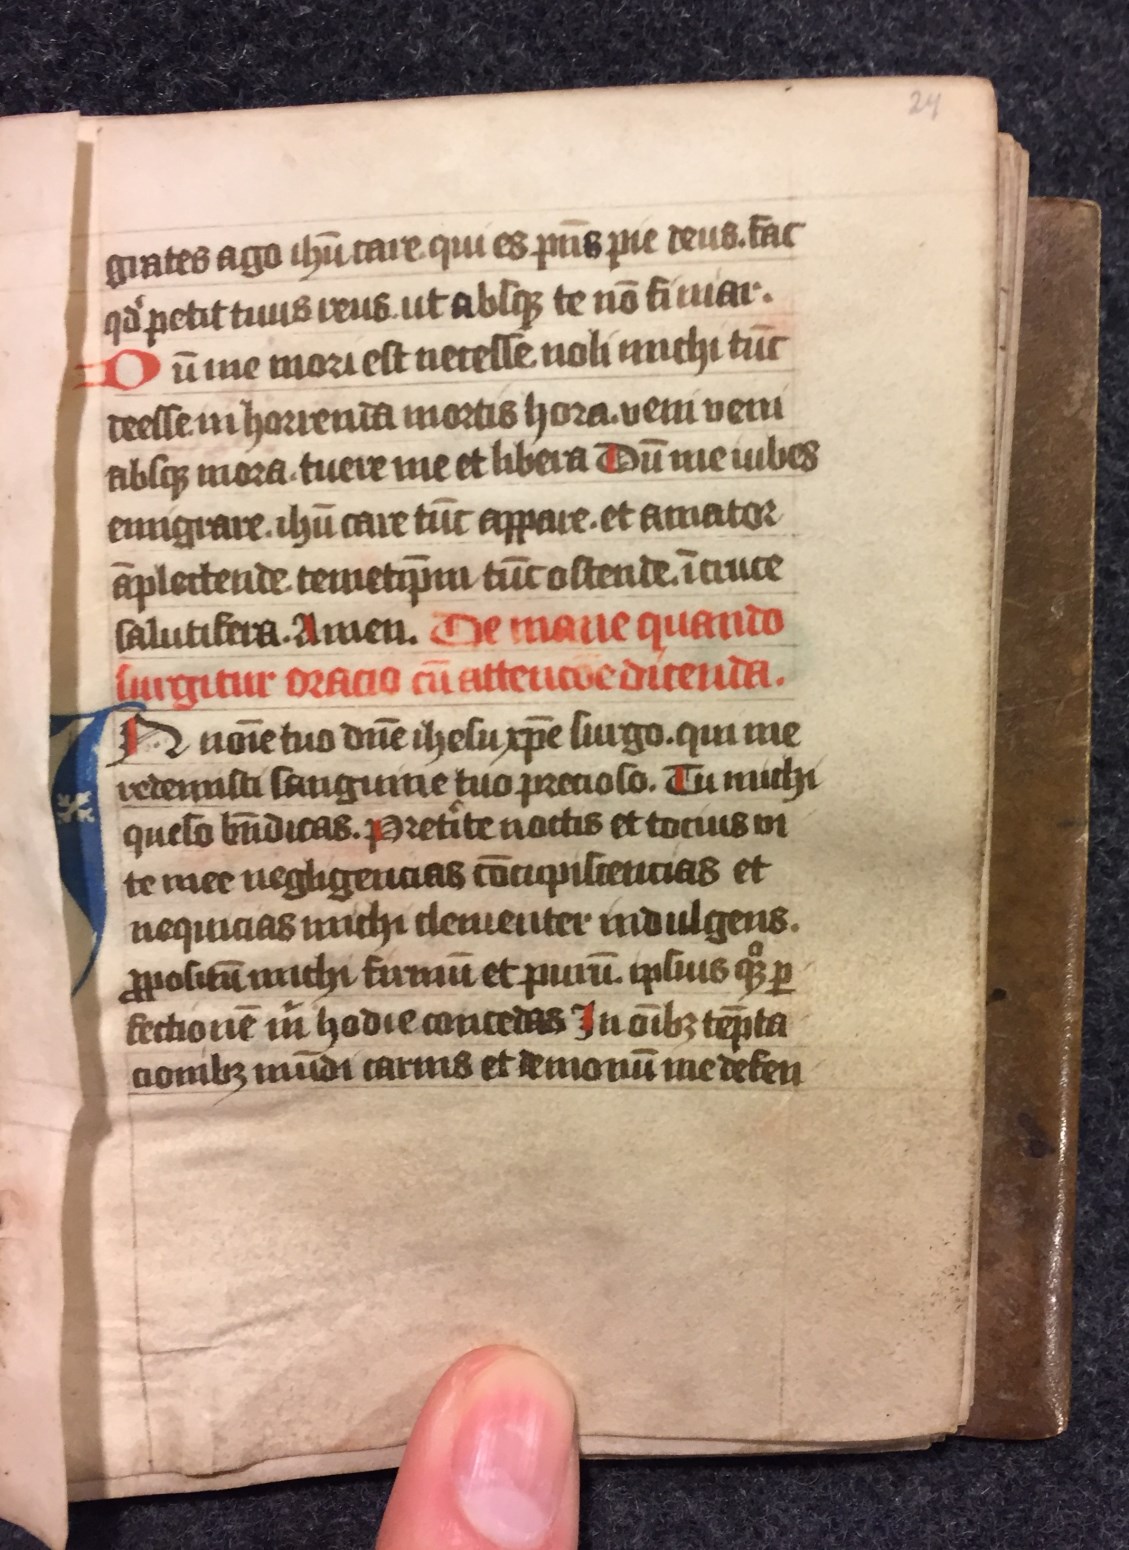 24
grates ago ihū care. qui es pn̄s pie deus. fac
qd̄ petit tuus reus. ut absqȝ te nō finiar.
Dū me mori est necesse. noli michi tūc
deesse. in horrenda mortis hora. veni veni
absqȝ mora. tuere me et libera Dū me iubes
emigrare. ihū care tūc appare. et amator
āplectende. temetip̄m tūc ostende. ī cruce
salutifera. Amen. De mane quando
surgitur oracio cū attencōe dicenda.
In noīe tuo dn̄e ihesu xp̄e surgo. qui me
redemisti sanguine tuo precioso. Tu michi
queso bn̄dicas. Pretite noctis et tocius vi
te mee negligencias cōcupiscencias et
nequicias michi clementer indulgens.
ꝓpositū michi firmū et purū. ipsius qȝ ꝑ
fectionē m̄ hodie concedas In oībȝ tēpta
cionibȝ mūdi carnis et demonū me defen